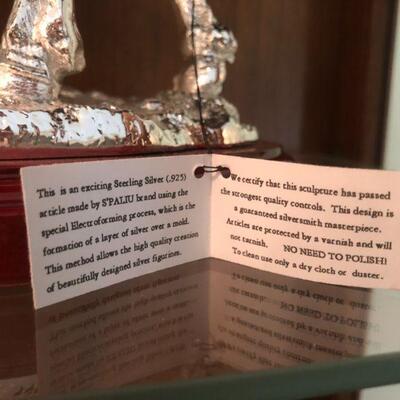 This is an exciting Sterling Silver (.925)
article made by S'PALIU brand using the
special Electroforming process, which is the
formation of a layer of silver over a mold.
This method allows the high quality creation
of beautifully designed silver figurines.
We certify that this sculpture has passed
the strongest quality controls. This design is
a guaranteed silversmith masterpiece.
Articles are protected by a varnish and will
not tarnish. NO NEED TO POLISH!
To clean use only a dry cloth or duster.